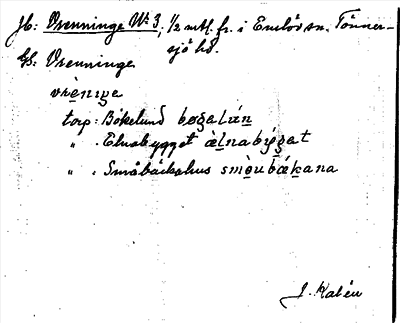 Jb: Vrenninge Nr 3, 1/2 mtl. fr. i Enslöv sn. Tönner-
sjö hd.
Gs: Vrenninge
vrèniŋe
torp: Bökelund bøgəlún
" . Elnabygget àlnabýgat
" . Småbäckahus smòubækana
J. Kalén